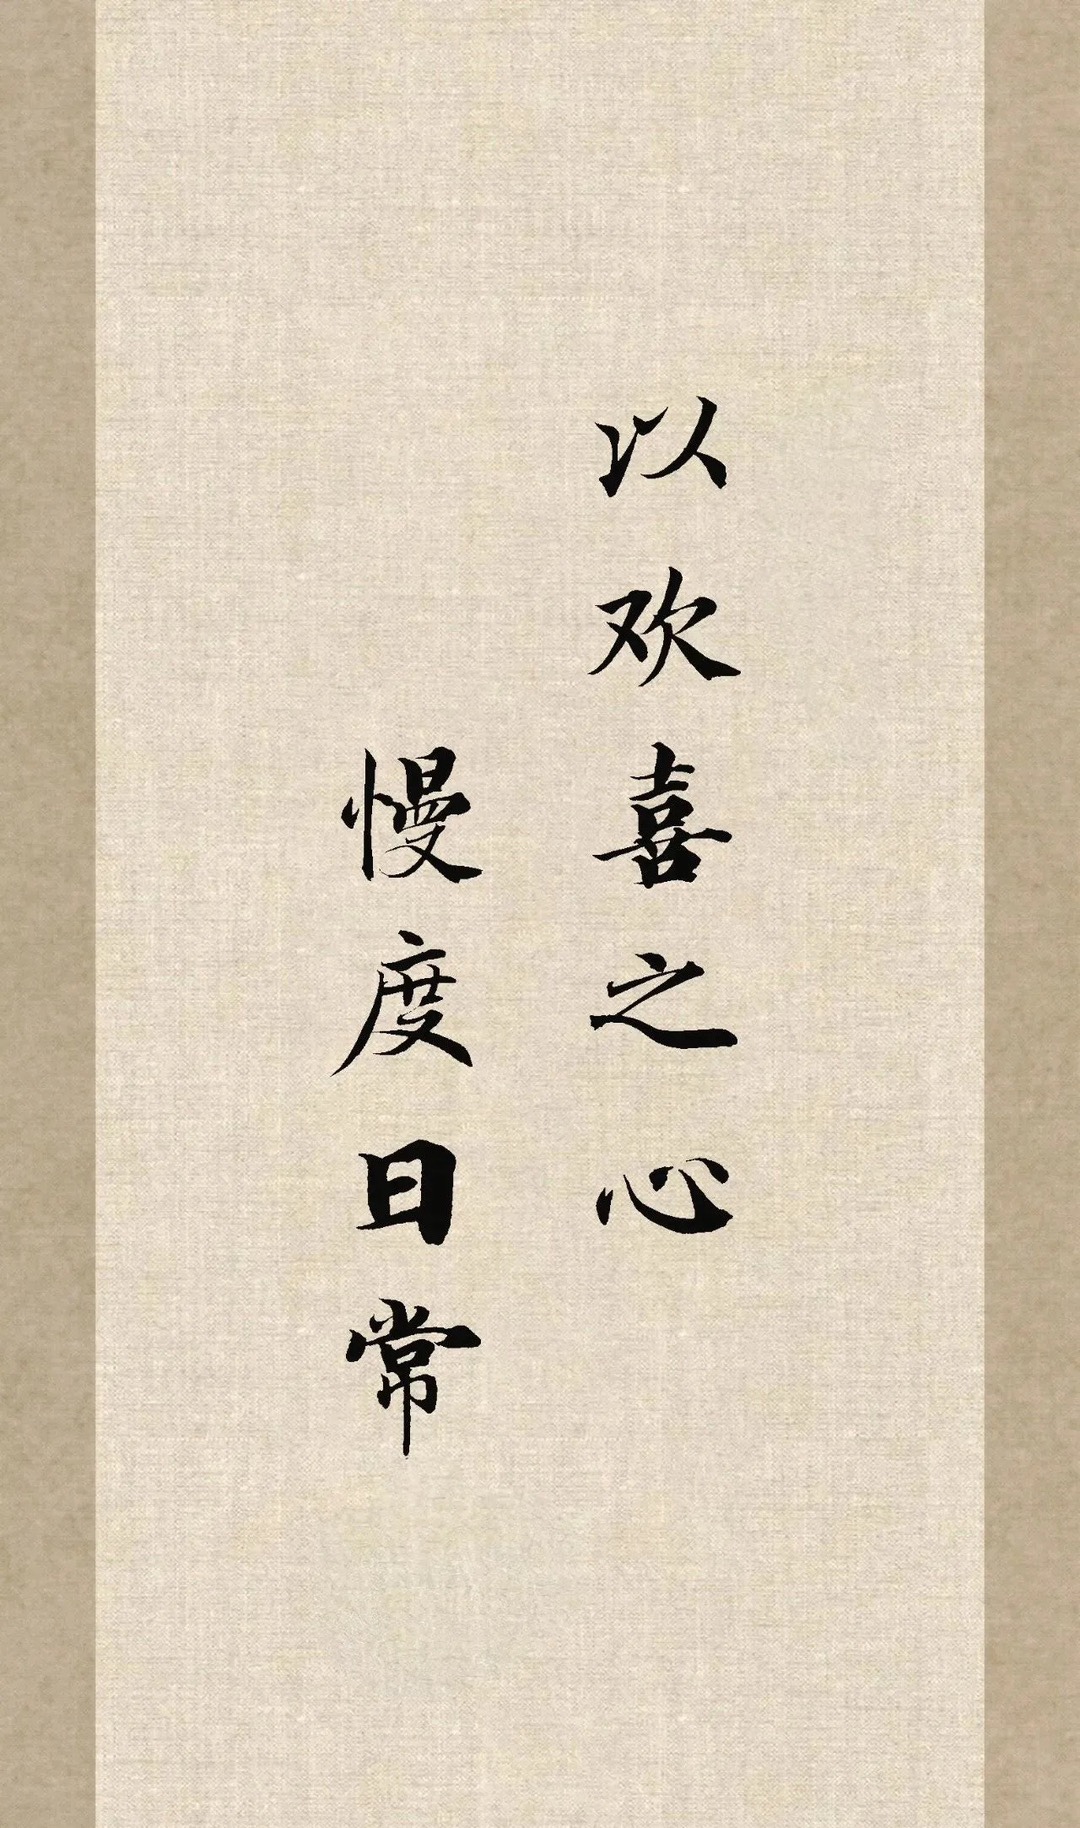 以欢喜之心
慢度日常